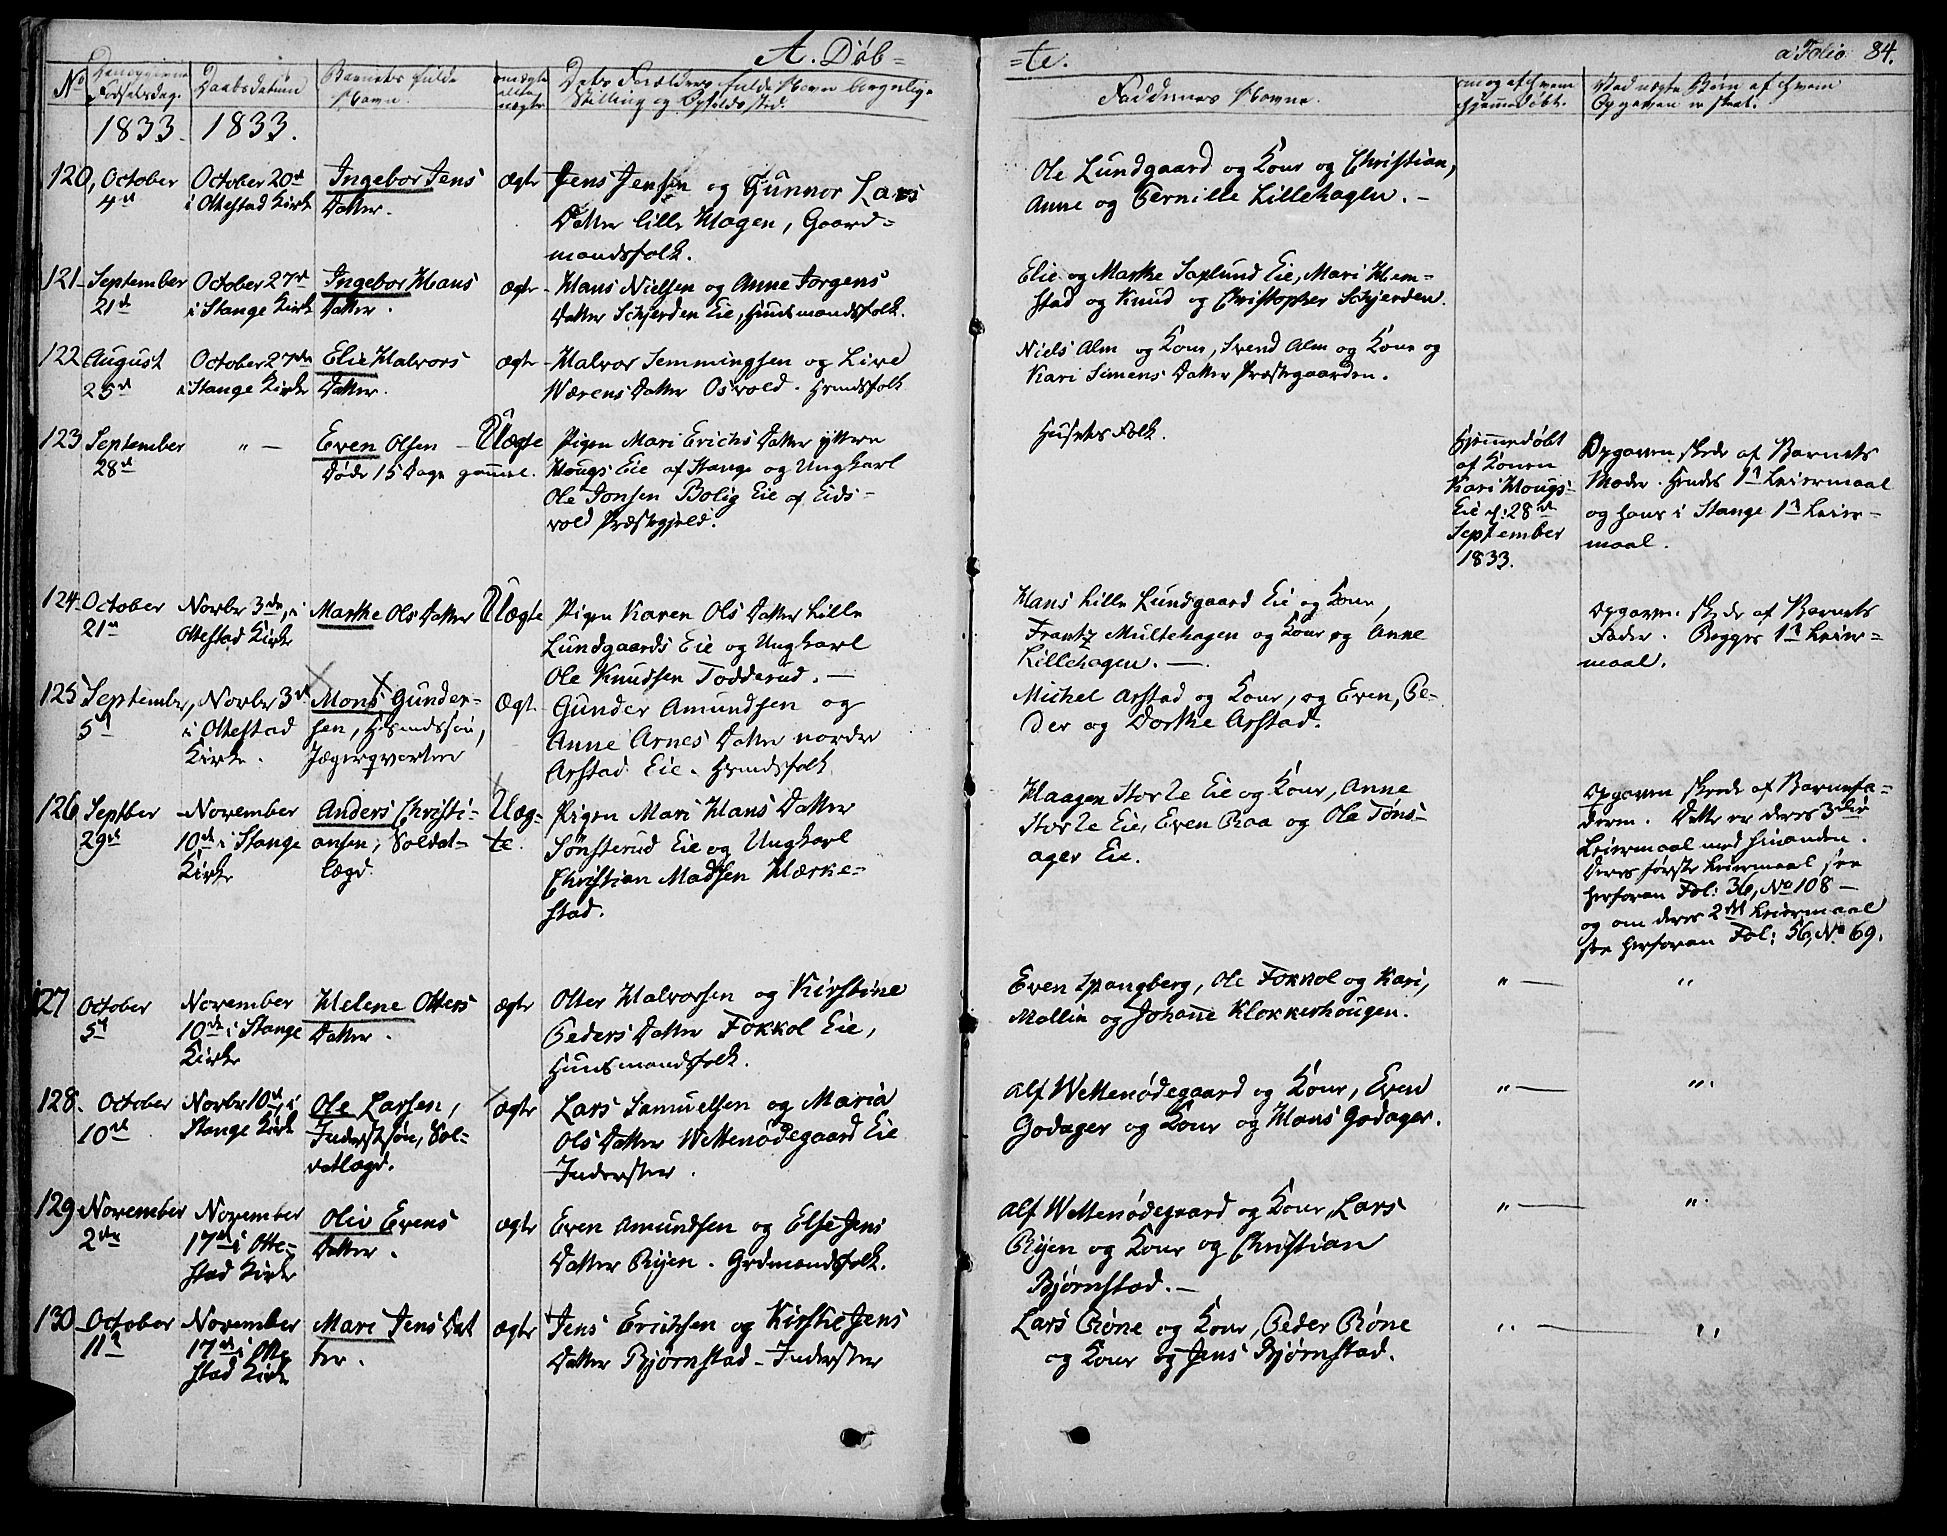 A. Døb-
-te.
a Folio 84.
No
Fødselsdag.
Daabsdatum
Barnets fulde
Navn.
uægte
Stilling og Opholdssted.
Faddernes Navne.
1833. 1833.
120, October 4d October 20d i Ottestad Kirk
Ingebor Jens Datter.
ægte
Jens Jensen og Gunnor Lars
Datter lille Hagen, Gaard-
mandsfolk.
Ole Lundgaard og Kone og Christian,
Anne og Pernille Lillehagen. -
121 September 21d October 27d i Stange Kirk
Ingebor Hans Datter.
ægte
Hans Nielsen og Anne Jørgens
Datter Schjerden Eie, Huusmandsfolk.
Elie og Marthe Saxlund Eie, Mari Hem-
stad og Knud og Christopher Schjerden.
122 August 25d October 27de i Stange Kirke
Elie Halvors Datter.
ægte
Halvor Semmingsen og Live
Værens Datter Osvold. Hmdsfolk
Niels Alm og Kone, Svend Alm og Kone og
Kari Simens Datter Præstegaarden.
123 September 28d " -
Even Olsen -
Døde 15 Dage gammel.
Uægte
Pigen Mari Erichs Datter yttre
Hougs Eie af Stange og Ungkarl
Ole Jonsen Bolig Eie af Eids-
vold Præstegjeld.
Husets Folk.
Hjemmedøbt
af Konen
Kari Hougs-
Eie d: 28de
September
1833.
Opgaven skede af Barnets
Moder. Hendes 1ste Leiermaal
og hans i Stange 1ste Leier-
maal.
124 October 21d Novbr 3de i Ottestad Kirke
Marthe Ols Datter
Uægte
Pigen Karen Ols Datter Lille
Lundgaards Eie og Ungkarl
Ole Knudsen Todderud. -
Hans Lille Lundgaard Eie og Kone,
Frantz Multehagen og Kone og Anne
Lillehagen. -
Opgaven skede af Barnets
Fader. Begges 1ste Leier-
maal.
125 September, 5d Novbr 3d i Ottestad Kirke.
Mons Gunder-
sen, Hsmdssøn,
Jægerqvarteer
Ægt.
Gunder Amundsen og
Anne Arnes Datter nordre
Arstad Eie. Hsmdsfolk.
Michel Arstad og Kone, og Even, Pe-
der og Dorthe Arstad.
126 Septber 29d November 10de i Stange Kirke
Anders Christi-
ansen, Soldat-
lægd.
Uæg-
te.
Pigen Mari Hans Datter
Sønsterud Eie og Ungkarl
Christian Madsen Hærke-
stad.
Haagen Stor Ze Eie og Kone, Anne
Stor Ze Eie, Even Raa og Ole Tøns-
ager Eie.
Opgaven skede af Barnefa-
deren. Dette er deres 3die
Leiermaal med hinanden.
Deres første Leiermaal see
herforan Fol: 36, No 108 -
og om deres 2det Leiermaal
see herforan Fol: 56, No 69.
127 October 5d November 10de i Stange Kirke
Helene Otters Datter.
ægte
Otter Halvorsen og Kirstine
Peders Datter Fokkol Eie,
Huusmandsfolk.
Even Spangberg, Ole Fokkol og Kari,
Mallin og Johanne Klokkerhougen.
" - "
128. October 10de Novbr 10de i Stange Kirk
Ole Larsen,
Inderstsøn, Sol-
datlægd.
ægte
Lars Samuelsen og Maria
Ols Datter Wettenødegaard Eie
Inderster.
Alf Wettenødegaard og Kone, Even
Godager og Kone og Hans Godager.
" - "
129 November 2de November 17de i Otte-
stad Kirke
Oliv Evens Datter.
ægte
Even Amundsen og Else Jens
Datter Rijen. Grdmandsfolk.
Alf Wettenødegaard og Kone, Lars
Rijen og Kone og Christian
Bjørnstad. -
" - "
130 October 11te November 17de i Otte
stad Kirk
Mari Jens Dat
ter.
ægte
Jens Erichsen og Kirstie Jens
Datter Bjørnstad - Inderster
Lars Røne og Kone, Peder Røne
og Kone og Jens Bjørnstad.
" - "